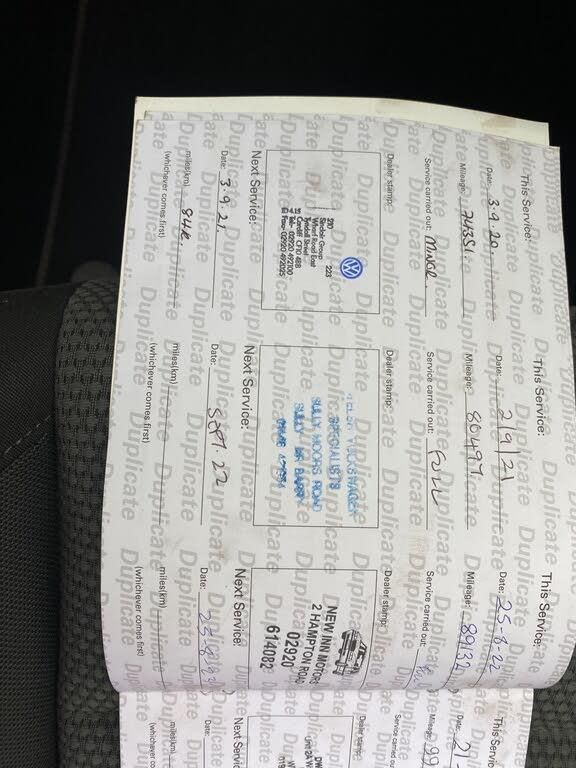 This Service:
Date: 3.9.20.
Mileage: 74351.
Service carried out: MINOR
Dealer stamp:
Sinclair Group
Wharf Road East
Tyndall Street
Cardiff CF10 4BB
Tel: 02920 492100
Fax: 02920 492025
Next Service:
Date: 3.9.21.
miles(km) 84K.
(whichever comes first)
This Service:
Date: 2/9/21
Mileage: 80497
Service carried out: FULL
Dealer stamp:
VOLKSWAGEN
SPECIALISTS
SULLY MOORS ROAD
SULLY
BARRY
Next Service:
Date: SEPT. 22
miles(km)
(whichever comes first)
This Service:
Date: 25-8-22
Mileage: 89132
Service carried out:
Dealer stamp:
NEW INN MOTORS
2 HAMPTON ROAD
02920
614082
Next Service:
Date:
miles(km)
(whichever comes first)
This Servic
Date:
Mileage: 99
Service carried ou
Dealer stamp:
Next Servic
Date:
miles(km)
(whichever co
Duplicate